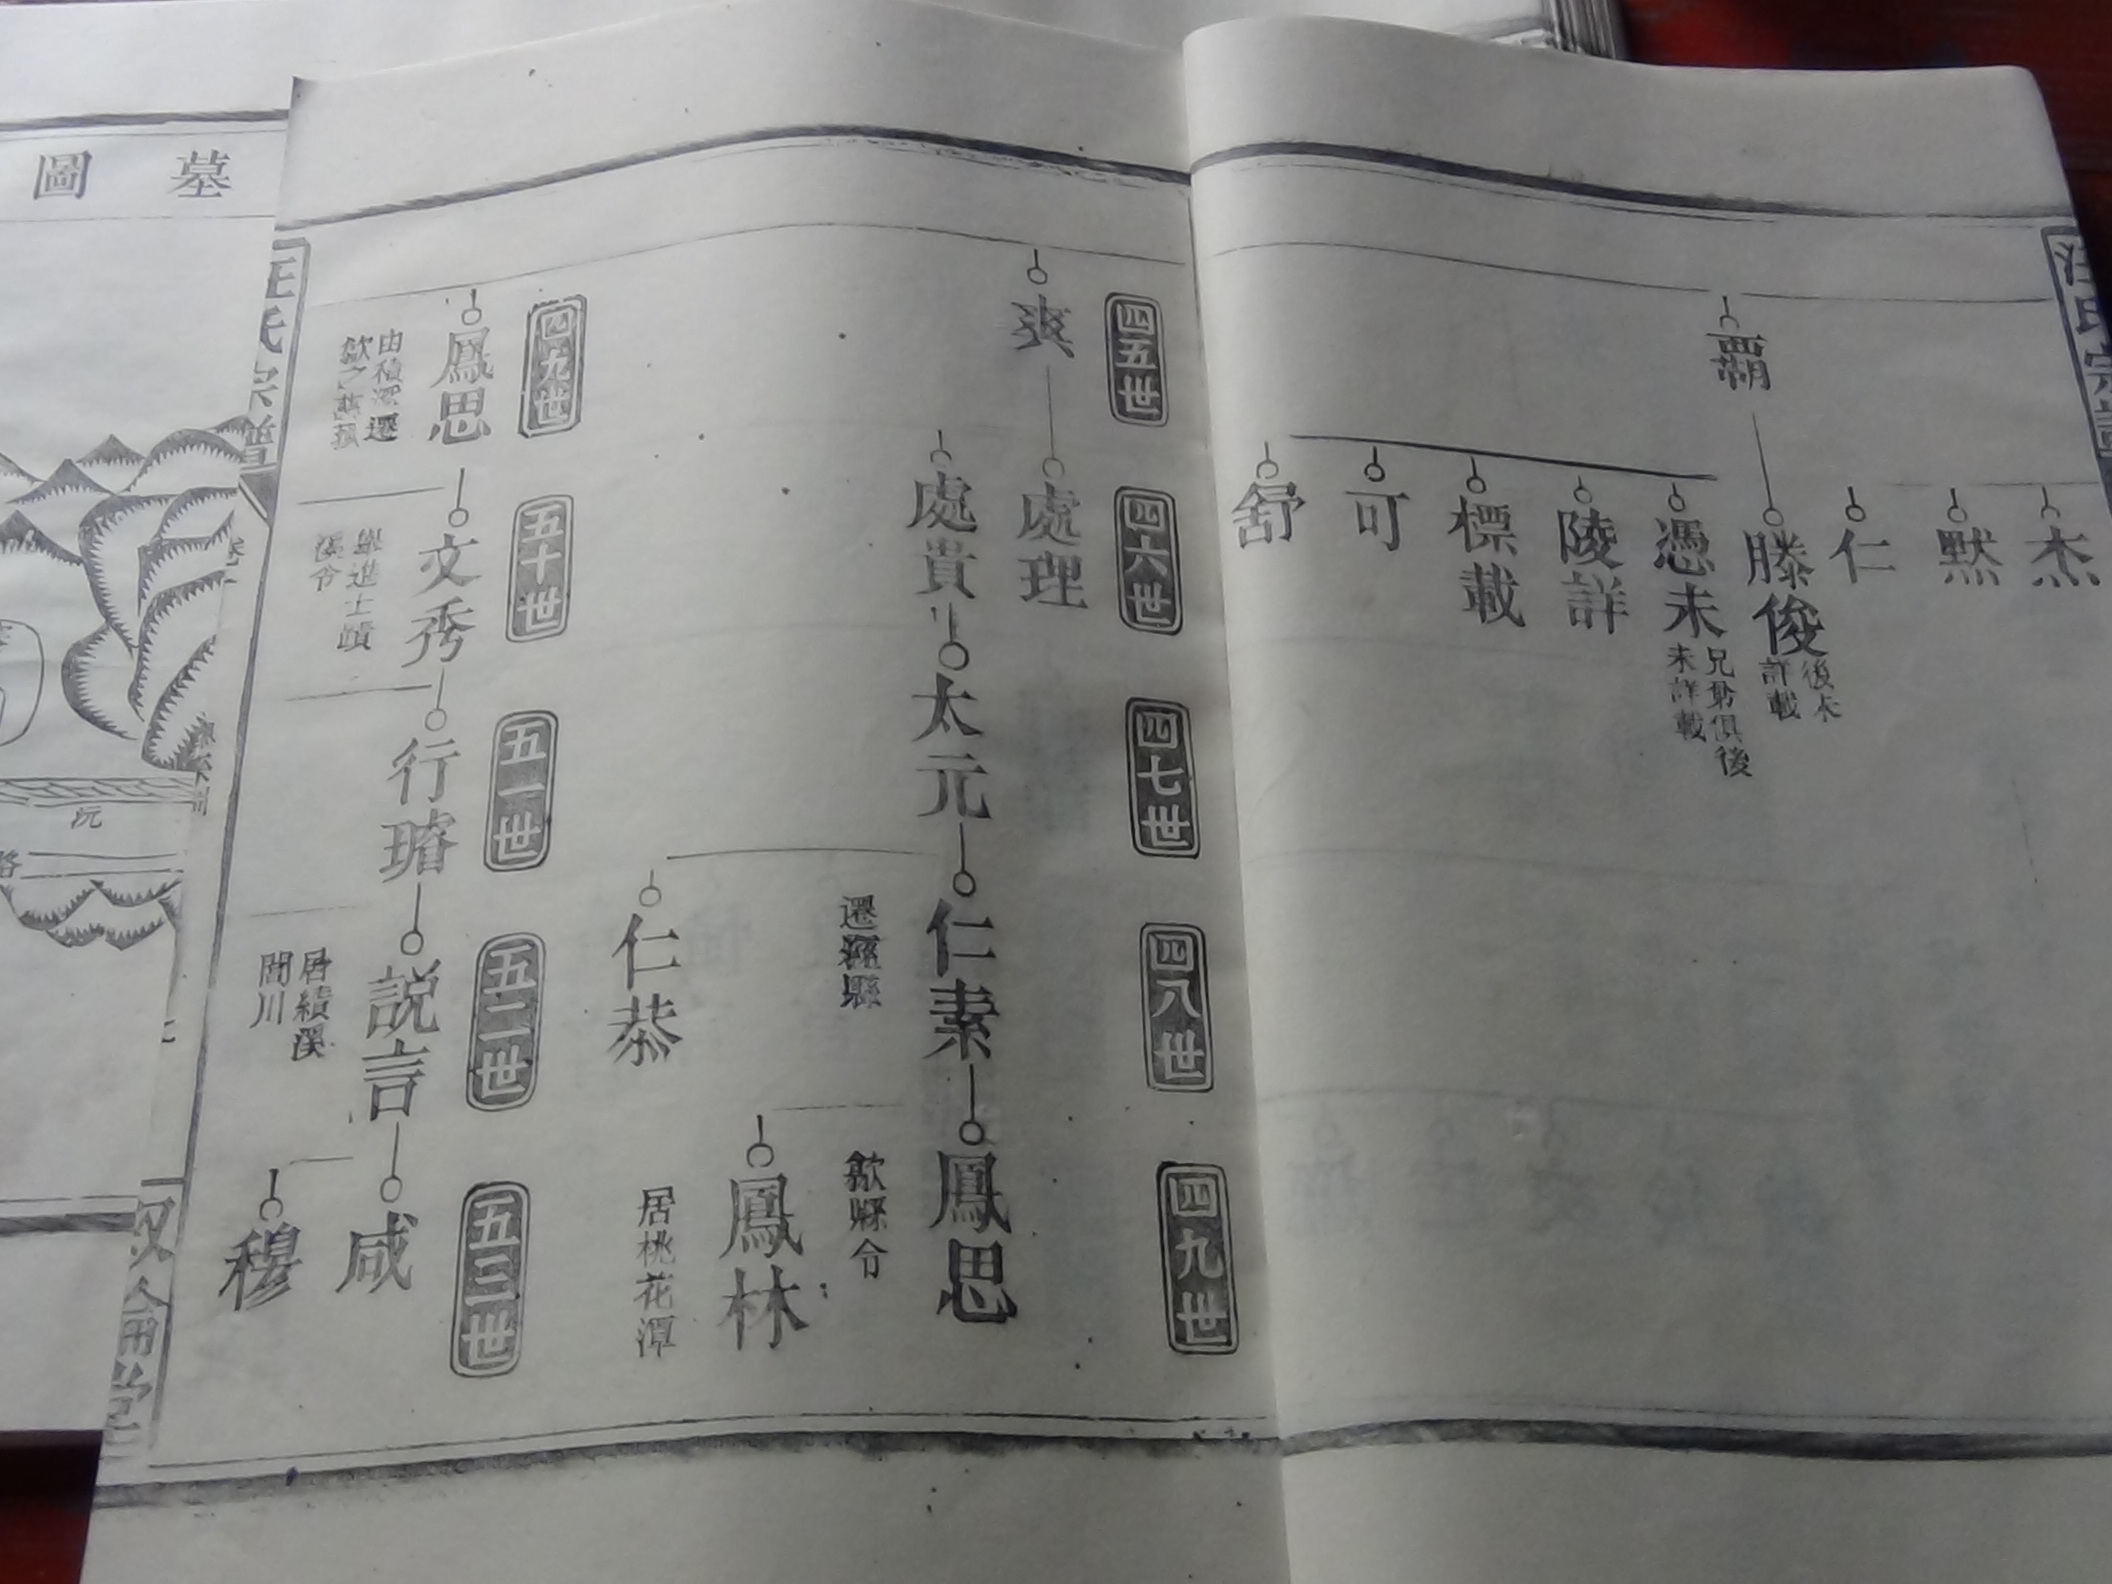 汪氏宗譜
杰
默
仁
霸
滕俊
後未
詳載
憑未
兄弟俱後
未詳載
陵詳
標載
可
舒
四五世
四六世
四七世
四八世
四九世
爽
處理
處貴
太元
仁素
遷績縣
鳳思
歙縣令
仁恭
鳳林
居桃花潭
四九世
五十世
五一世
五二世
五三世
鳳思
由積溪遷
歙之
文秀
舉進士績
溪令
行瑃
説言
居績溪
間川
咸
穆
汪氏宗譜
叙倫堂
墓圖